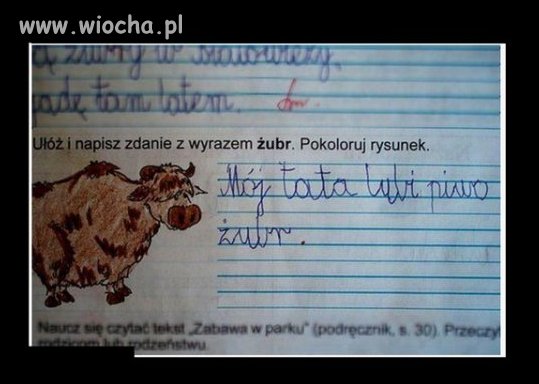 www.wiocha.pl
ą żubry w Białowieży.
jadę tam latem.
Ułóż i napisz zdanie z wyrazem żubr. Pokoloruj rysunek.
Mój tata lubi piwo
żubr.
Naucz się czytać tekst „Zabawa w parku” (podręcznik, s. 30). Przeczy
rodzicom lub rodzeństwu.